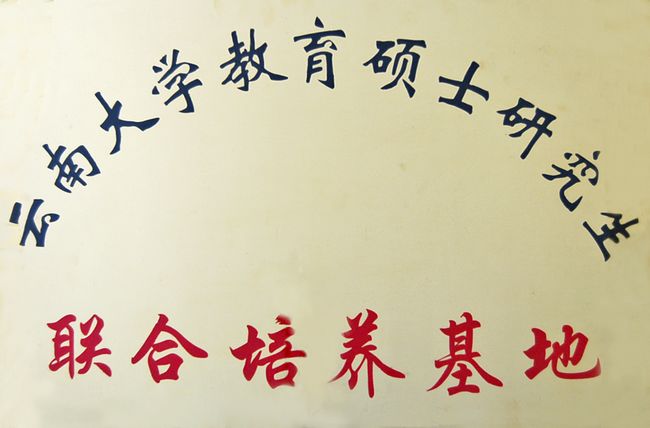 云南大学教育硕士研究生
联合培养基地